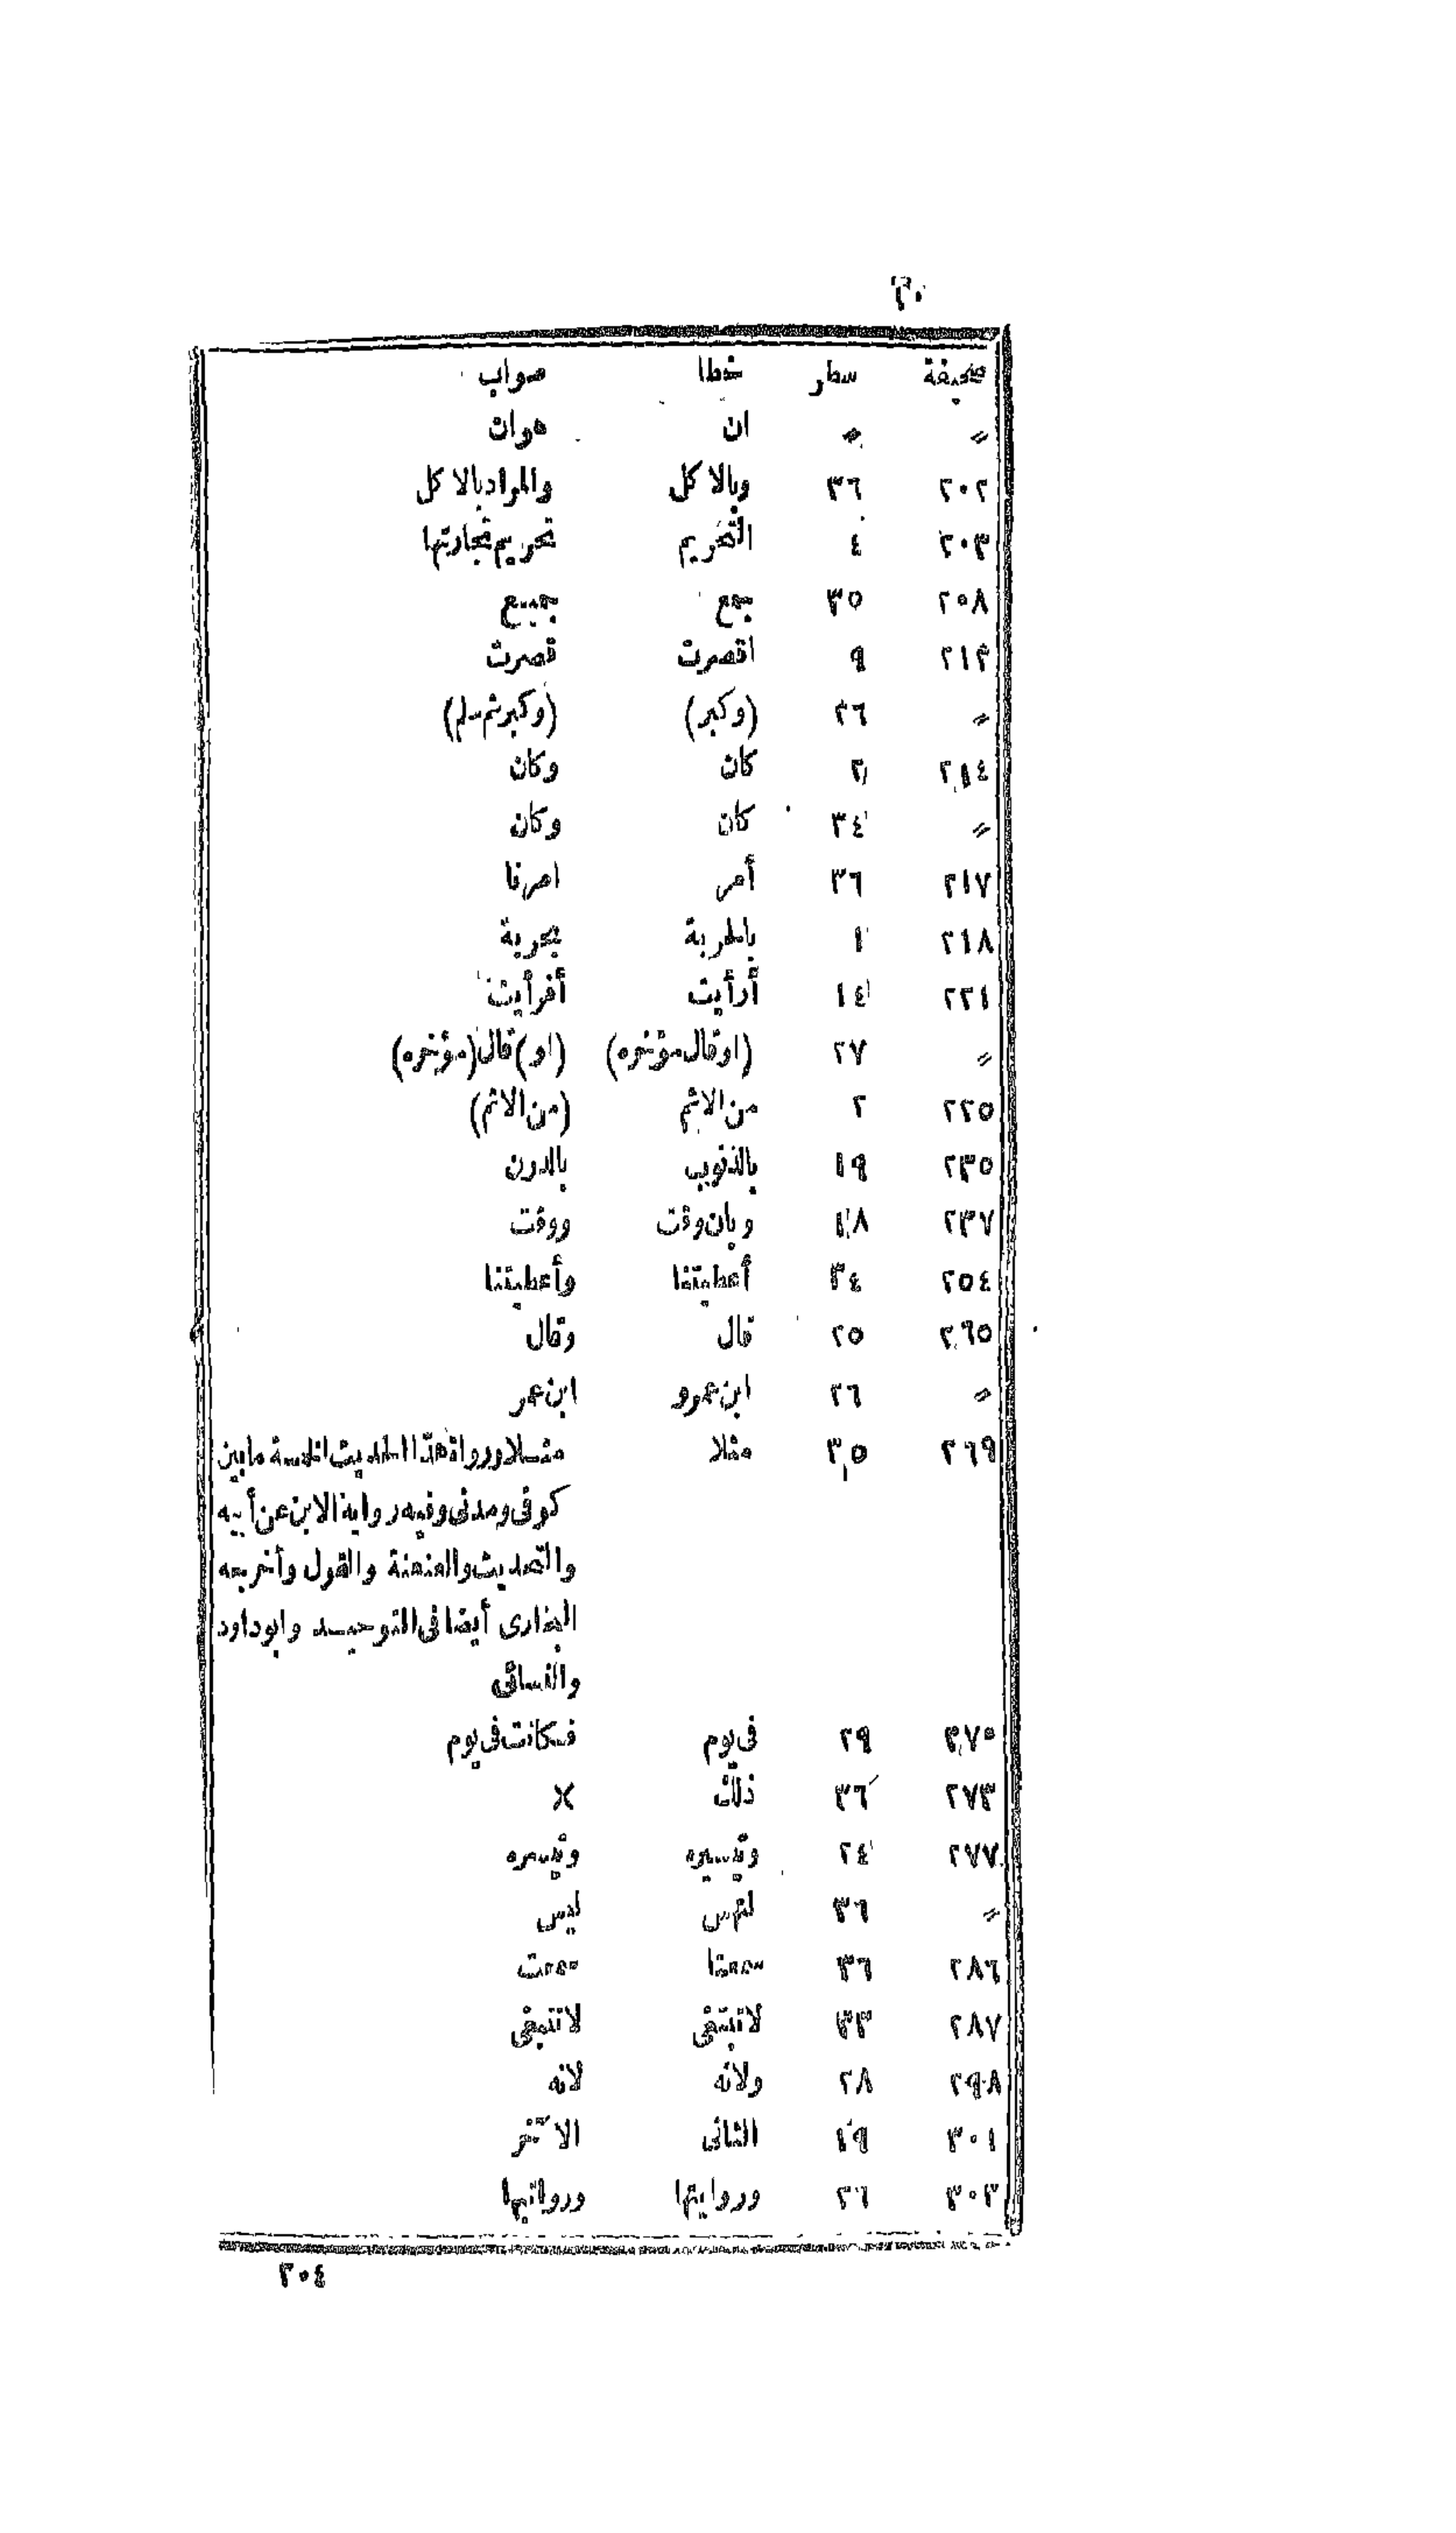 ٢٠
صحيفة سطر خطا صواب
〃 〃 ان هوان
٢٠٢ ٣٦ وبالاكل والمراد بالاكل
٢٠٣ ٤ التحريم تحريم تجارتها
٢٠٨ ٣٥ جمع جميع
٢١٣ ٩ اقصرت قصرت
〃 ٢٦ (وكبر) (وكبر ثم سلم)
٢١٤ ٢ كان وكان
〃 ٣٤ كان وكان
٢١٧ ٣٦ أمر امرنا
٢١٨ ١ بالحربة بحربة
٢٢١ ١٤ أرأيت أفرأيت
〃 ٢٧ (او قال مؤخره) (او) قال (مؤخره)
٢٢٥ ٢ من الاثم (من الاثم)
٢٣٥ ١٩ بالذنوب بالدرن
٢٣٧ ١٨ وبان وقت ووقت
٢٥٤ ٣٤ أعطيتنا وأعطيتنا
٢٦٥ ٢٥ قال وقال
〃 ٢٦ ابن عمرو ابن عمر
٢٦٩ ٣٥ مثلا مثلا ورواة هذا الحديث الخمسة ما بين
كوفى ومدنى وفيه رواية الابن عن أبيه
والتحديث والعنعنة والقول وأخرجه
البخارى أيضا فى التوحيد وابو داود
والنسائى
٢٧٠ ٢٩ فى يوم فكانت فى يوم
٢٧٣ ٣٦ ذلك ×
٢٧٧ ٢٤ وتيسيره وتيسره
〃 ٣٦ ليس
٢٨٦ ٣٦ سمعنا سمعت
٢٨٧ ٣٣ لا تبتغى لا تنبغى
٢٩٨ ٢٨ ولانه لانه
٣٠١ ١٩ الثانى الآخر
٣٠٣ ٢٦ وروايتها ورواتها
٣٠٤